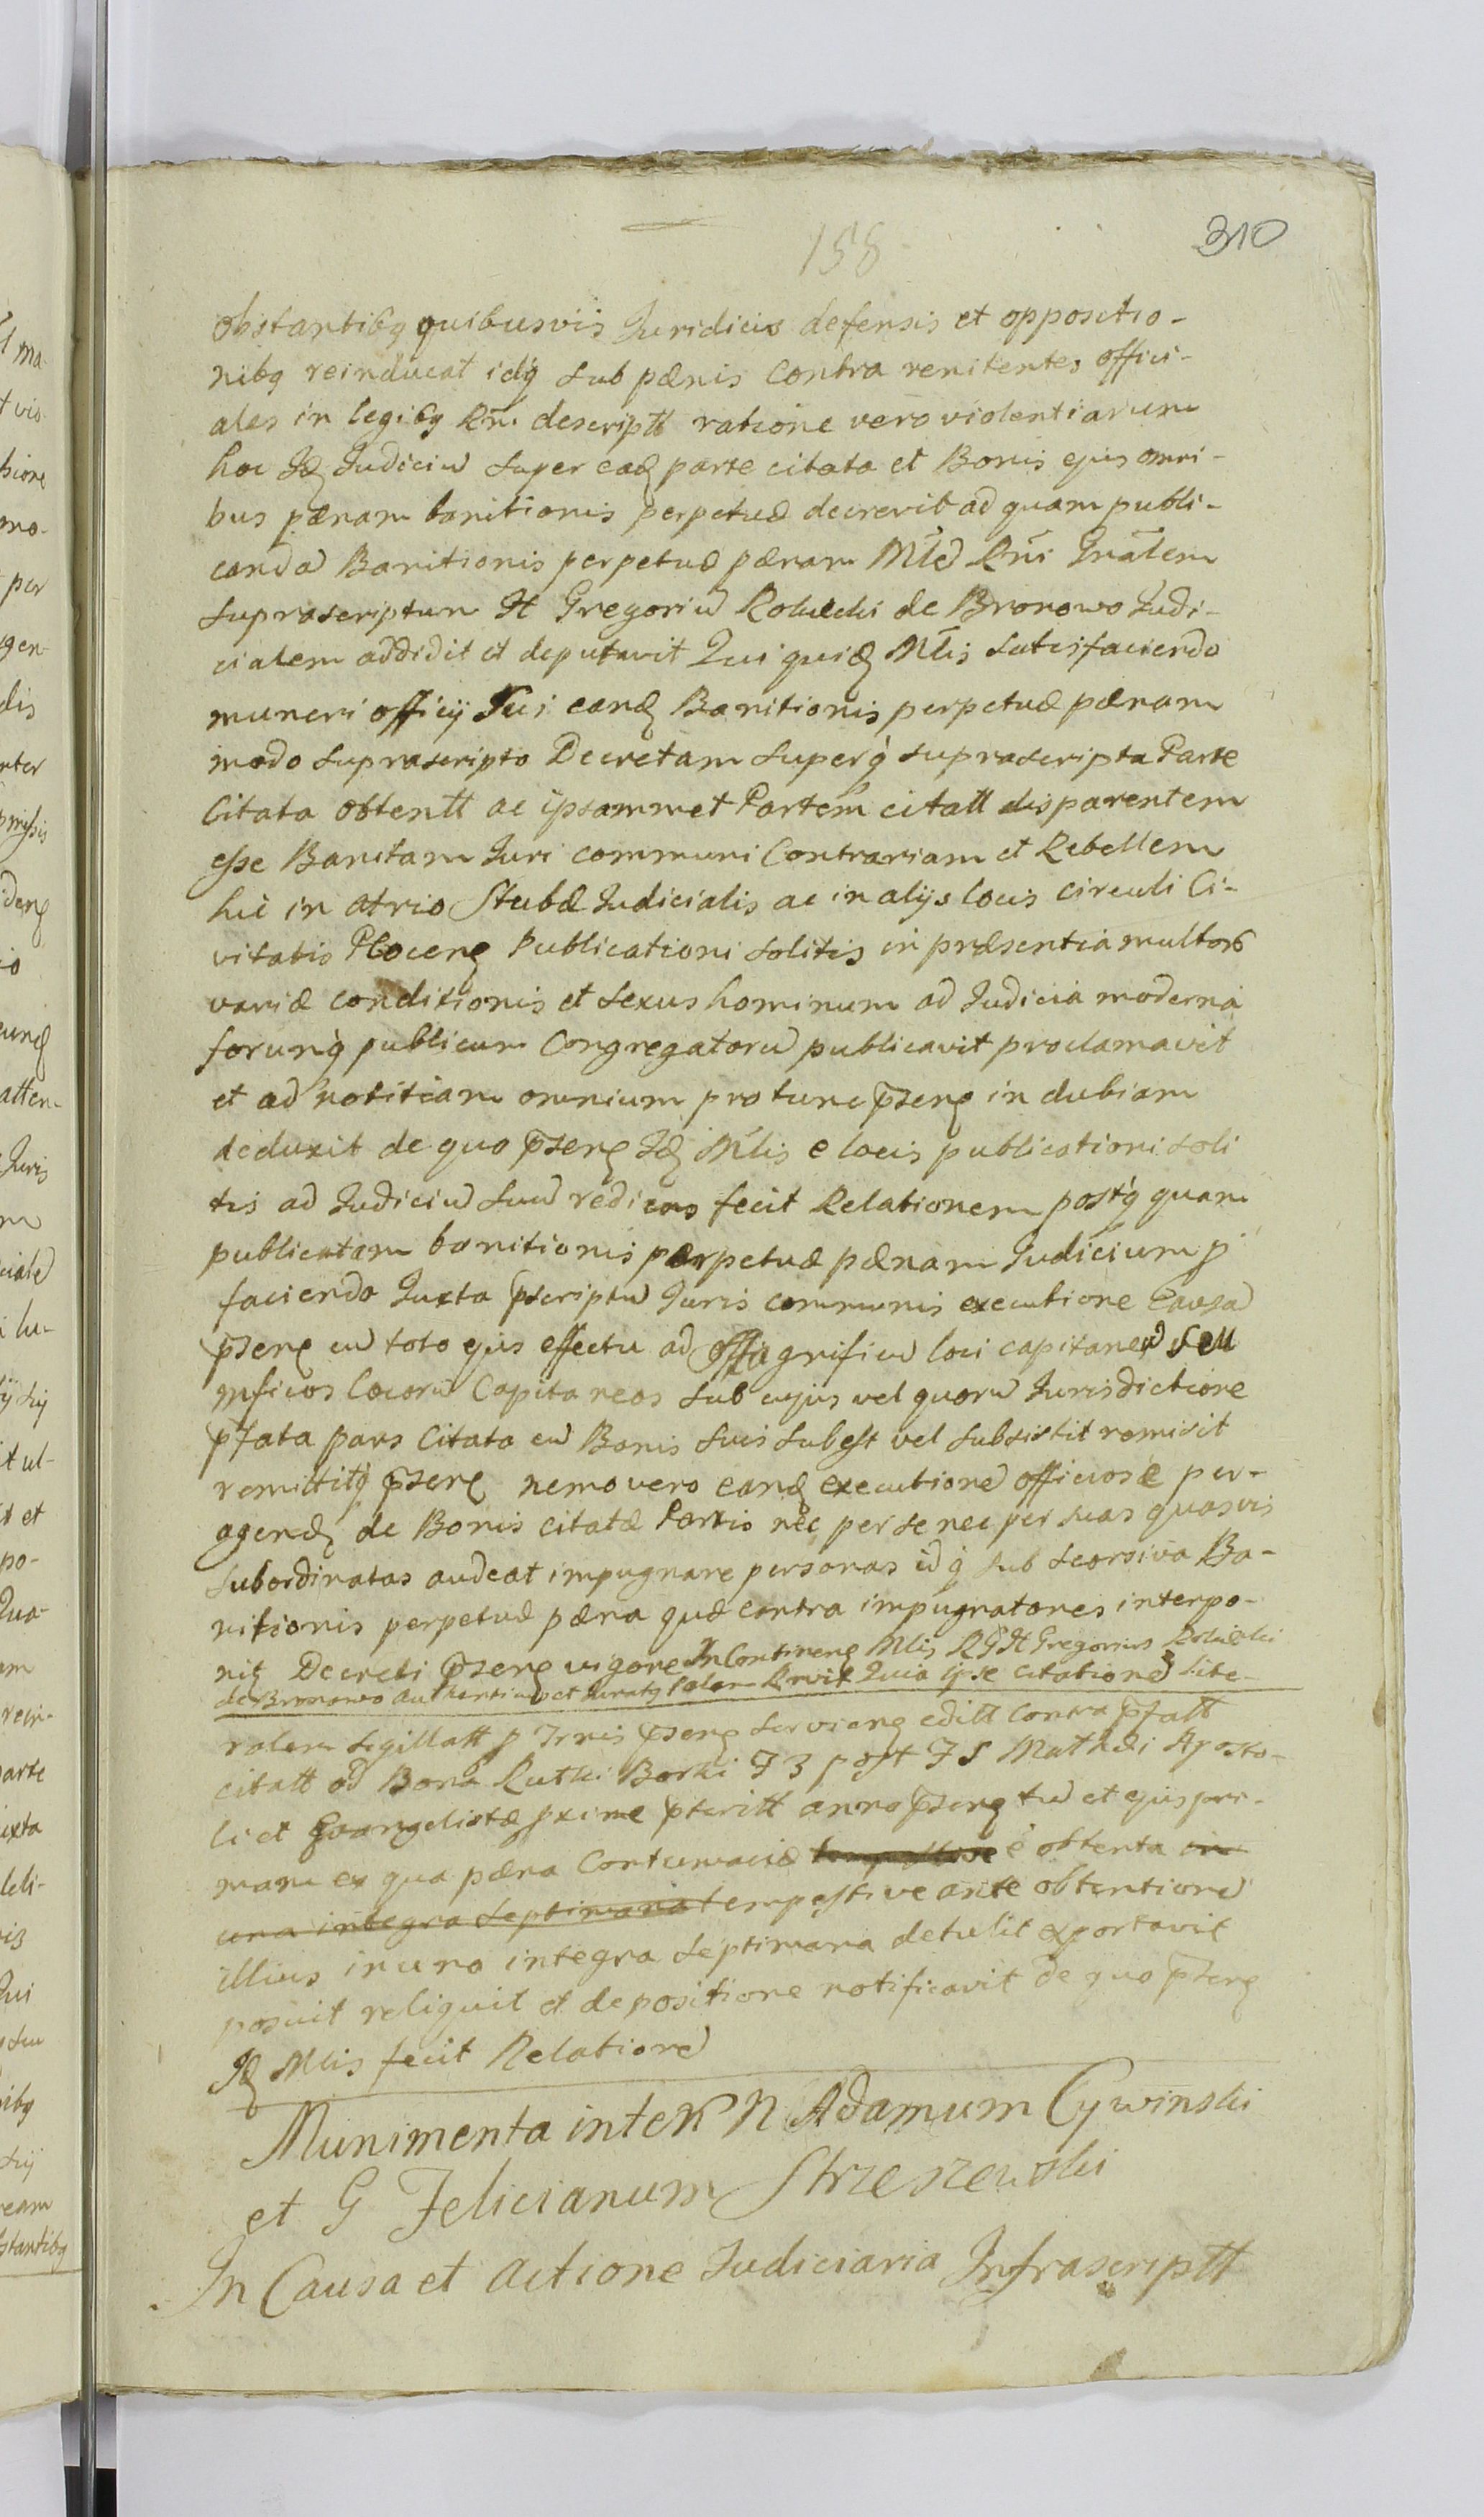 310
158
obstantibq quibusvis Juridicis defensis et oppositio-
nibq reinducat idq̀ sub pænis Contra renitentes offici-
ales in legibq Rñi descriptt ratione vero violentiarum
hoc Idę Judiciũ super eadę parte citata et Bonis ejus omni-
bus pænam banitionis perpetuæ decrevit ad quam publi-
candã Banitionis perpetuæ pænam Mlẽ Rñi Gnãlem
suprascriptum H Gregoriũ Roluẽcki de Bronowo Judi-
cialem addidit et deputavit Qui quidę Mlis satisfaciendo
muneri officij Sui eandę Banitionis perpetuæ pænam
modo suprascripto Decretam superq̀ suprascripta Parte
Citata obtentt ac ipsammet Partem citatt disparentem
esse Banitam Juri communi Contrariam et Rebellem
hic in atrio Stubæ Judicialis ac in alijs locis circuli Ci-
vitatis Plocenę Publicationi solitis in præsentia multorũ
variæ conditionis et sexus hominum ad Judicia moderna
forumq̀ publicum Congregatorũ publicavit proclamavit
et ad notitiam omnium pro tunc p̃senę indubiam
deduxit de quo p̃senę Idę Mlis e locis publicationi soli
tis ad Judiciũ suũ rediens fecit Relationem postq̀ quam
publicatam banitionis perpetuæ pænam Judicium p
faciendo Juxta p̃scriptũ Juris communis executione Causã
p̃senę cũ toto ejus effectu ad Offi gnificũ loci capitaneũ seu
mficos locorũ Capitaneos sub cujus vel quorũ Jurisdictione
p̃fata pars Citata cũ Bonis suis subest vel subsistit remisit
remittitq̀ p̃senę nemo vero eandę executionẽ officiose per-
agendę de Bonis citatæ Partis nec per se nec per suas quasvis
subordinatas audeat impugnare personas idq̀ sub seorsiva Ba-
nitionis perpetuæ pæna quæ contra impugnatores interpo-
nit Decreti p̃senę vigore In Continenę Mlis RG H Gregorius Roluẽcki
de Bronowo authenticus et Juratq palam Rcvit Quia ipse citationẽ lite-
ralem sigillatt p Trnis p̃senę servienę editt Contra p̃fatt
citatt ad Bona Rutki Borki F 3 post F S Mathæi Aposto-
li et Evangelistæ pxime p̃teritt anno p̃senę tũ et ejus pri-
mam ex qua pæna Contumaciæ tempestive è obtenta in
una integra septimana tempestive ante obtentionẽ
illius in una integra septimana detulit exportavit
posuit reliquit et de positione notificavit de quo p̃senę
Idę Mlis fecit Relationẽ
Munimenta inteR N Adamum Cywinski
et G Felicianum Strzeszewski
In Causa et Actione Judiciaria Infrascriptt